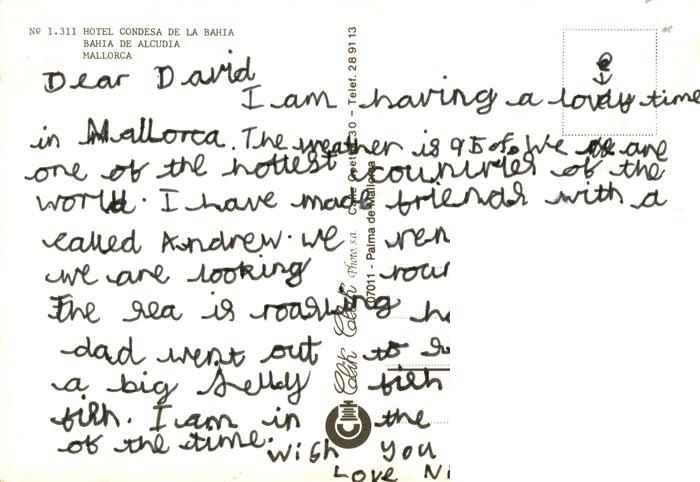 Nº 1.311 HOTEL CONDESA DE LA BAHIA
BAHIA DE ALCUDIA
MALLORCA
Dear David
I am having a lovely time
in Mallorca. The weather is 95 of. We are
one of the hottest countries of the
world. I have made friends with a
called Andrew. We ren
we are looking rour
The sea is roasting ha
dad went out to
a big Jelly fish
fish. I am in the
of the time. Wish You
Love Ni
Clik Photo, s.a. 30 - Telef. 28 91 13
07011 - Palma de Mallorca